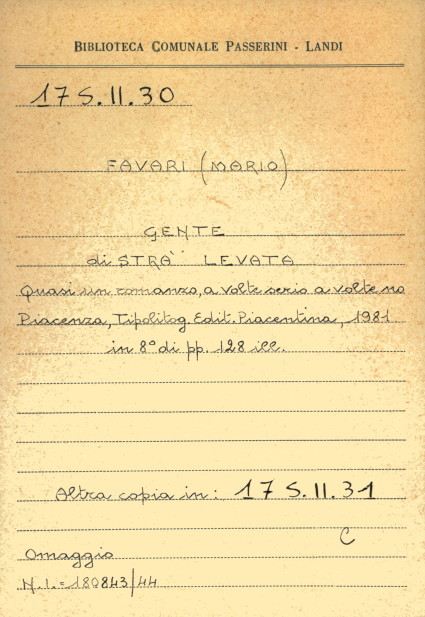 BIBLIOTECA COMUNALE PASSERINI - LANDI
17 S.II.30
FAVARI (MARIO)
GENTE
di STRA' LEVATA
Quasi un romanzo, a volte serio a volte no
Piacenza, Tipolitog. Edit. Piacentina, 1981
in 8° di pp. 128 ill.
Altra copia in: 17 S.II.31
C
Omaggio
N.I.=180843/44